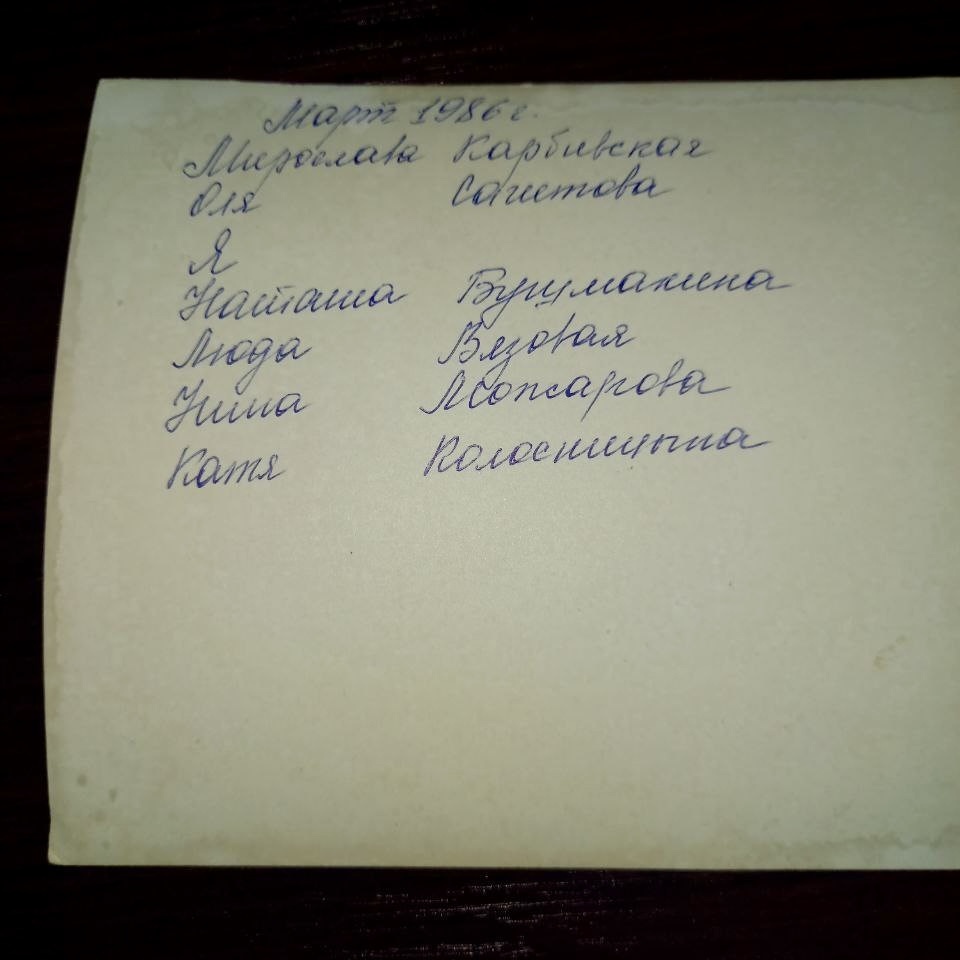 Март 1986 г.
Мирослава Карбивская
Оля Сагитова
Я
Наташа Бушмакина
Люда Вязовая
Нина Можарова
Катя Колосницына